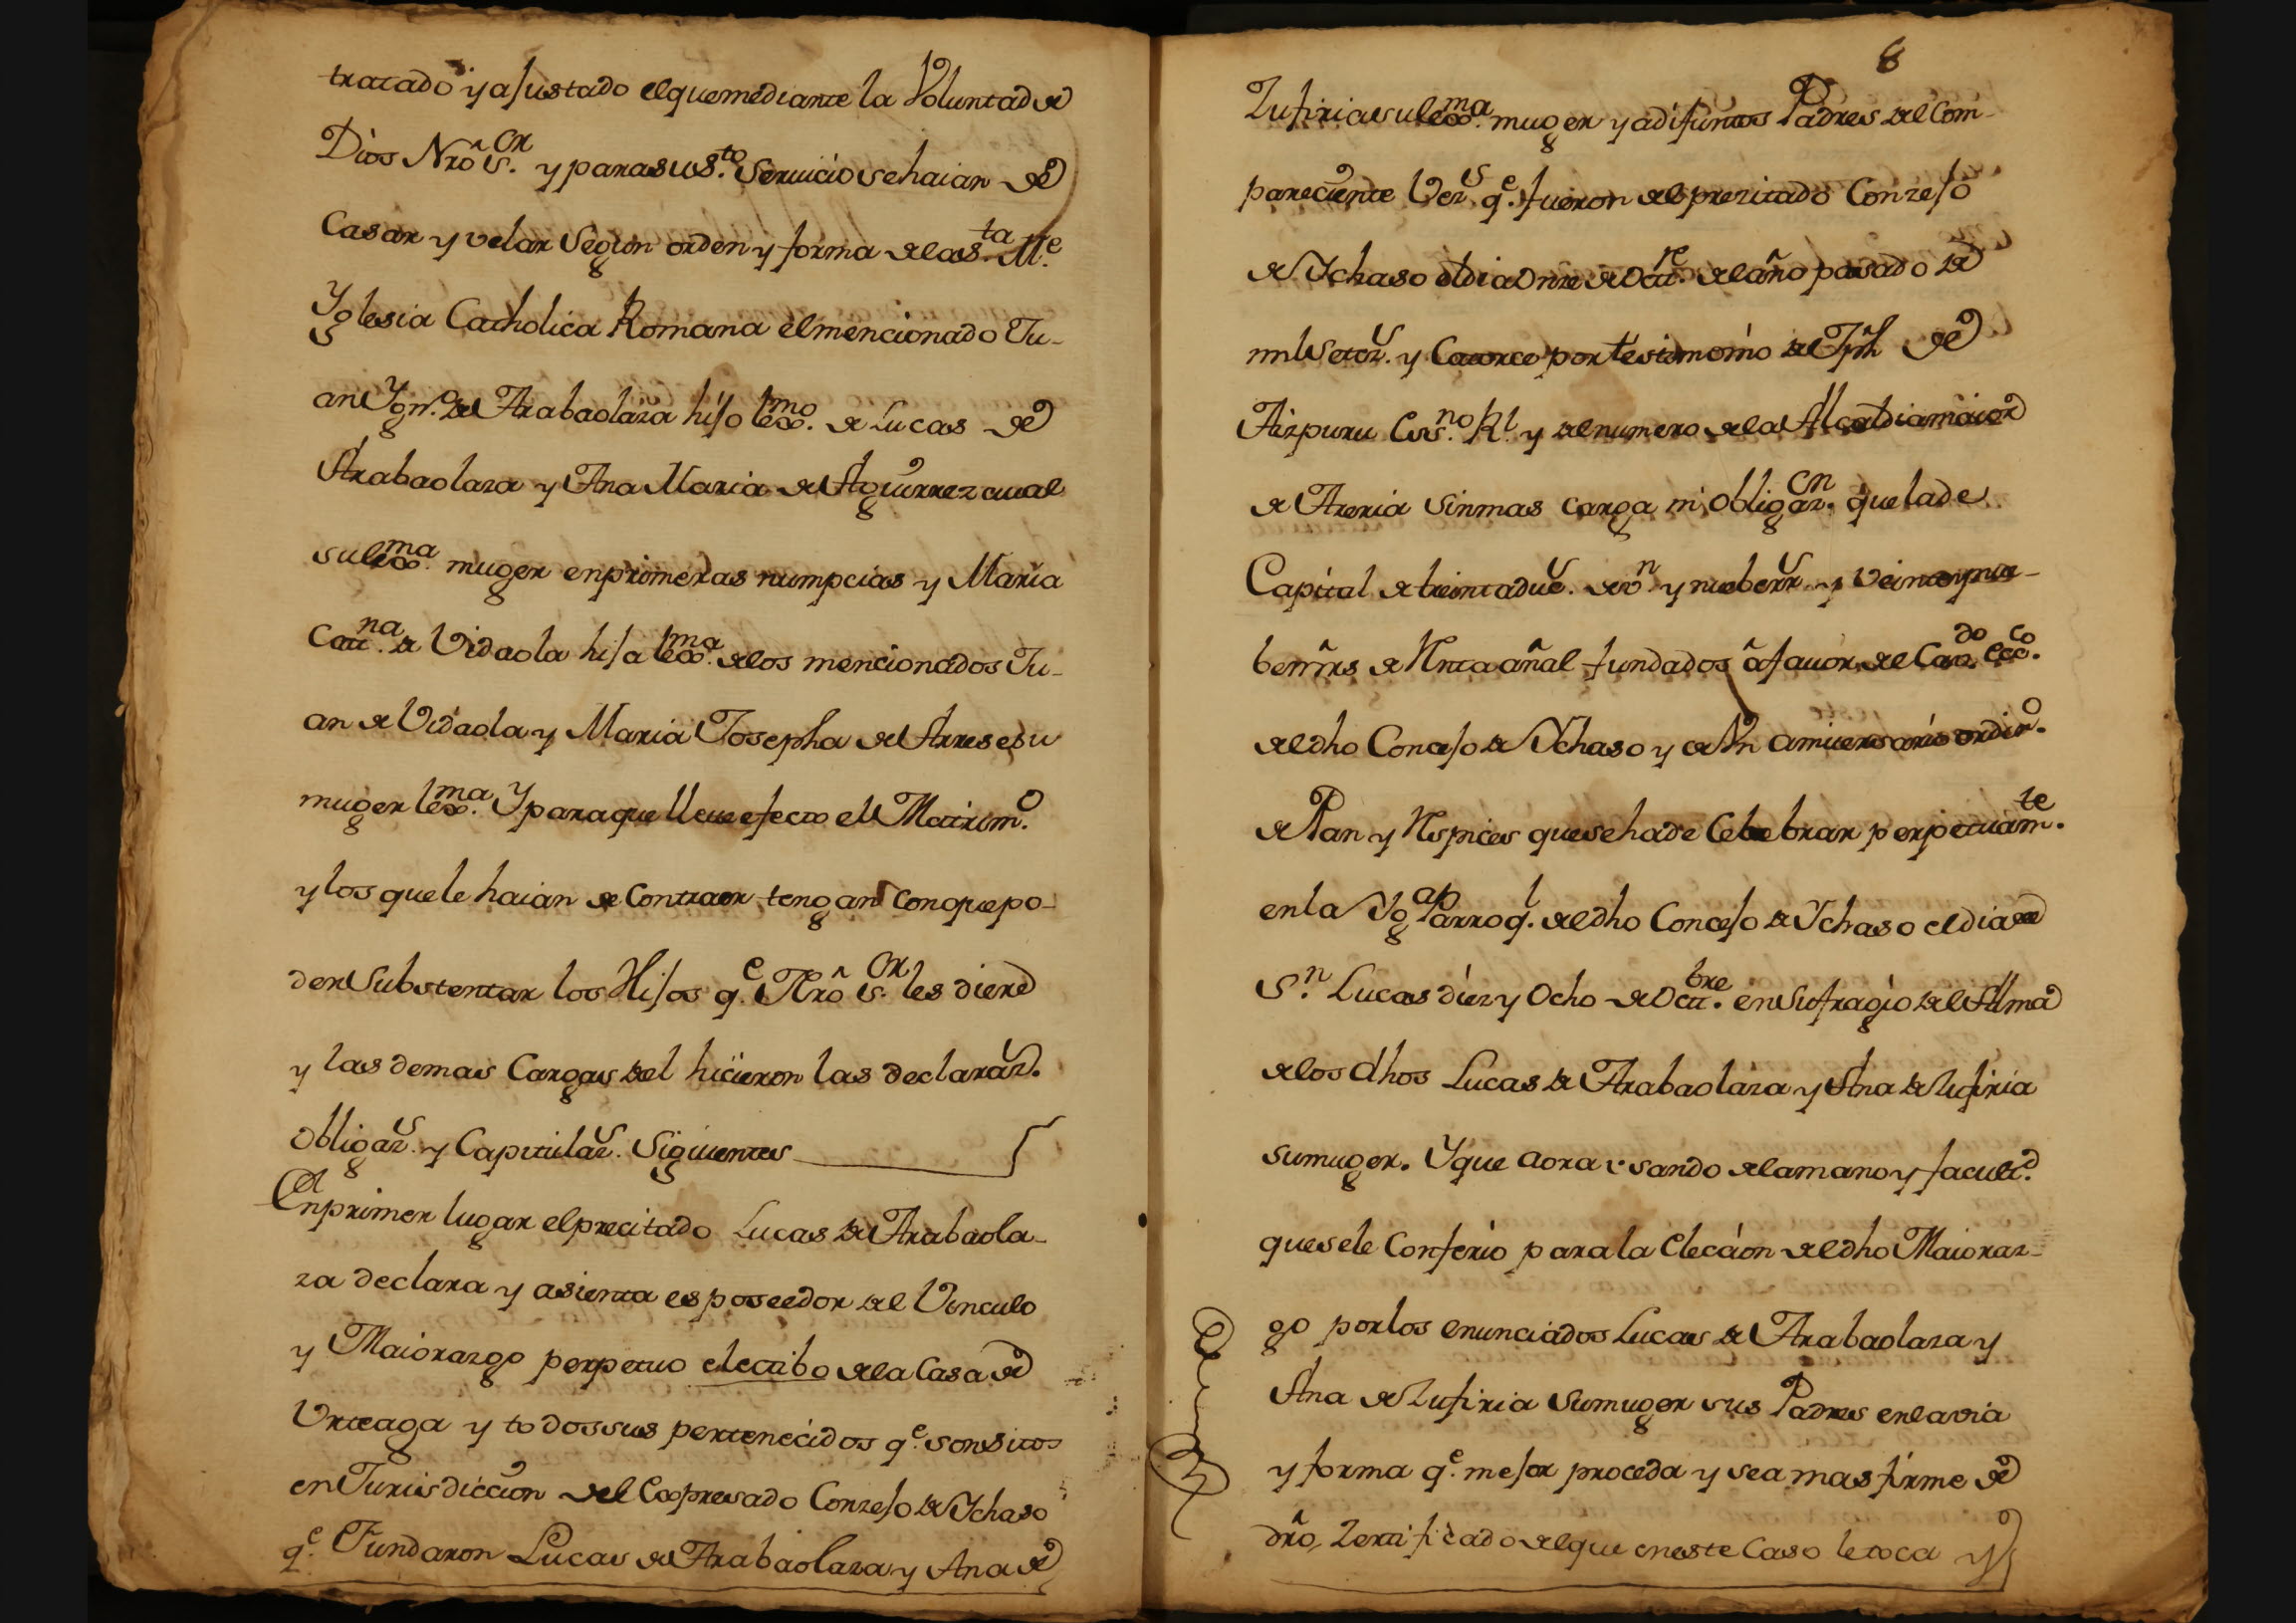 tratado y ajustado el que mediante la Voluntad de
Dios Nrô S.or y para su S.to Seruicio se haian de
Casar y velar Segun orden y forma de la S.ta M.e
Yglesia Catholica Romana el mencionado Ju-
an Ygn.o de Arabaolaza hijo lexmo. de Lucas de
Arabaolaza y Ana Maria de Aguirrezaual
su lexma. muger en primeras numpcias y Maria
Cat.na de Vidaola hija lexma. de los mencionados Ju-
an de Vidaola y Maria Josepha de Arrese su
muger lexma. Y para que lleue efecto el Matrim.o
y los que le haian de Contraer tengan con que po-
der Substentar los Hijos q.e Nrô S.or les diere
y las demas Cargas del hicieron las declaraz.s
Obligaz.s y Capitulaz.s Siguientes
En primer lugar el precitado Lucas de Arabaola-
za declara y asienta es poseedor del Vinculo
y Maiorazgo perpetuo electibo de la Casa de
Urteaga y todos sus pertenecidos q.e son sitos
en Jurisdiccion del Expresado Conzejo de Ychaso
q.e Fundaron Lucas de Arabaolaza y Ana de
8
Zufiria su lexma. muger ya difuntos Padres del Com-
pareciente Vez.s q.e fueron del prezitado Conzejo
de Ychaso el dia Onze de Oct.re del año pasado de
mil Setez.s y Catorce por testimonio de Jph de
Aizpuru Ess.no Rl. y del numero de la Alcaldia maior
de Areria Sin mas carga ni Obligaz.on que la de
Capital de treinta du.s de v.n y nuebe rr.s y Veinte y nue-
be mrs de Renta añal fundados â fauor del Cau.do ecc.co
del dho Concejo de Ychaso y de Un aniuersario ordin.o
de Pan y Respices que se ha de Celebrar perpetuam.te
en la Ygª Parroq.l del dho Concejo de Ychaso el dia de
S.n Lucas diez y Ocho de Oct.bre en Sufragio del Alma
de los dhos Lucas de Arabaolaza y Ana de Zufiria
su muger. Y que aora usando de la mano y facult.d
que se le Conferio para la Elecion del dho Maioraz-
go por los enunciados Lucas de Arabaolaza y
Ana de Zufiria Su muger sus Padres en la via
y forma q.e mejor proceda y sea mas firme de
drô, Zertificado del que en este Caso le toca y